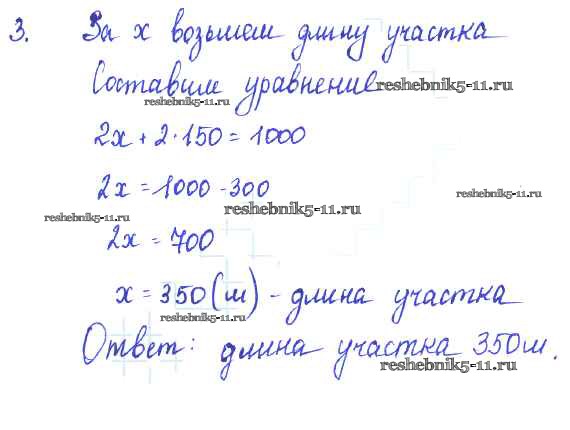 3. За x возьмем длину участка
Составим уравнение
reshebnik5-11.ru
reshebnik5-11.ru
2x + 2·150 = 1000
2x = 1000 - 300
reshebnik5-11.ru
reshebnik5-11.ru
reshebnik5-11.ru
2x = 700
x = 350 (м) - длина участка
reshebnik5-11.ru
Ответ: длина участка 350м.
reshebnik5-11.ru